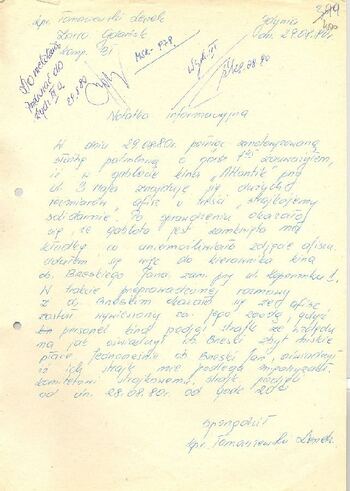 kpr. Tomaszewski Leszek
Gdynia
Słowo Gdańsk
dn. 29.08.80r.
Komp. III
Notatka informacyjna
W dniu 29.08.80 pełniąc
służbę patrolową o godz. zauważyłem,
iż w gablocie kina „Atlantik” przy
ul. 3 Maja znajduje się dużych
rozmiarów afisz o treści „strajkujemy
solidarnie”. Po sprawdzeniu okazało
się, że gablota jest zamknięta na
kłódkę co uniemożliwiało zdjęcie afiszu.
się więc do kierownika kina
ob. Breskiego Jana zam. przy ul. Kopernika
W trakcie przeprowadzonej rozmowy
z ob. Breskim okazało się że afisz
został wywieszony za jego zgodą, gdyż
personel kina podjął strajk ze względu
na jak oświadczył ob. Breski zbyt niskie
płace. Jednocześnie ob. Breski Jan, oświadczył
iż ich strajk nie podlega
komitetowi strajkowemu, strajk podjęli
od dn. 28.08.80r. od godz. 20
Sporządził
kpr. Tomaszewski Leszek